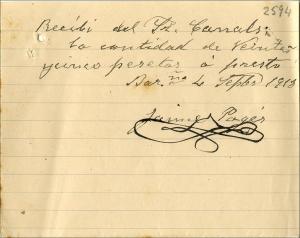 2594
Recibí del Sr. Canals
la cantidad de Veinte
y cinco pesetas á
Bar.ña 4 Sepbre 1913
Jaime Pagés